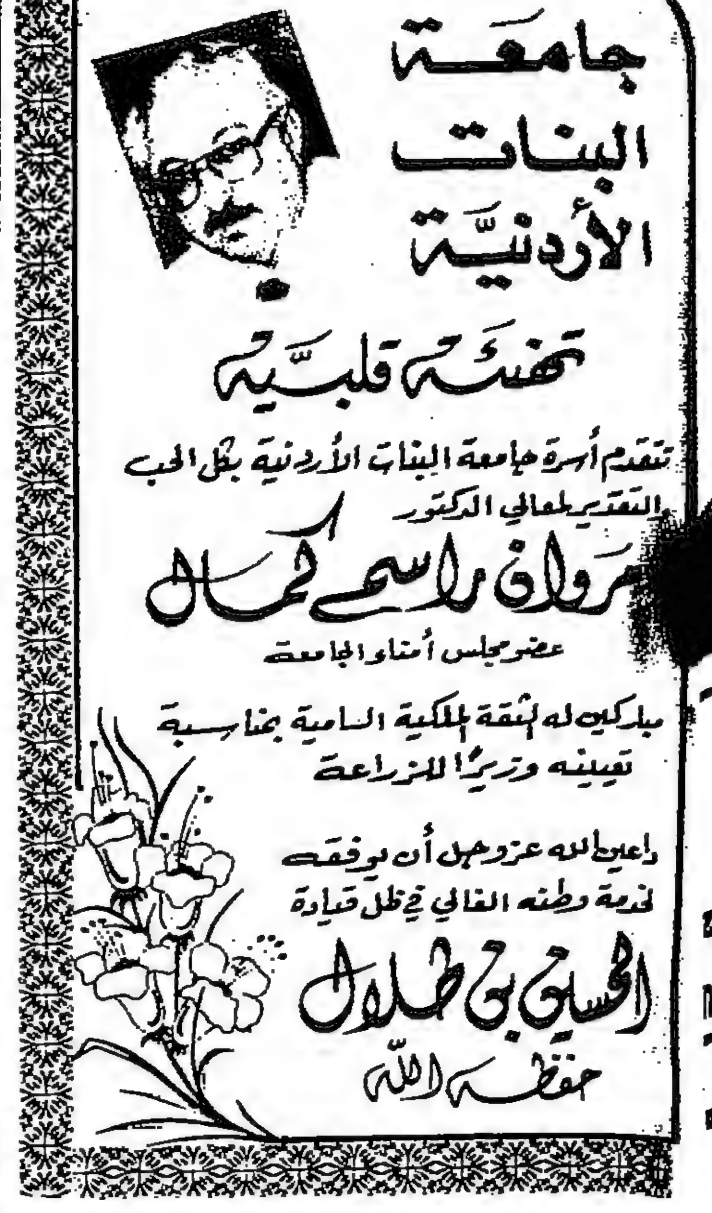 جامعة
البنات
الأردنيَّة
تهنئة قلبيَّة
تتقدم أسرة جامعة البنات الأردنية بكل الحب
والتقدير لمعالي الدكتور
مروان راسم كمال
عضو مجلس أمناء الجامعة
مباركين له الثقة الملكية السامية بمناسبة
تعيينه وزيرًا للزراعة
داعين الله عز وجل أن يوفقه
لخدمة وطنه الغالي في ظل قيادة
الحسين بن طلال
حفظه الله